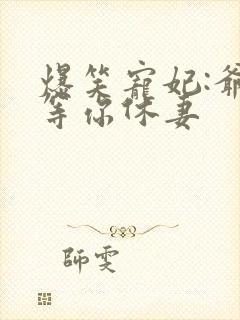 爆笑寵妃:爺
等你休妻
師雯